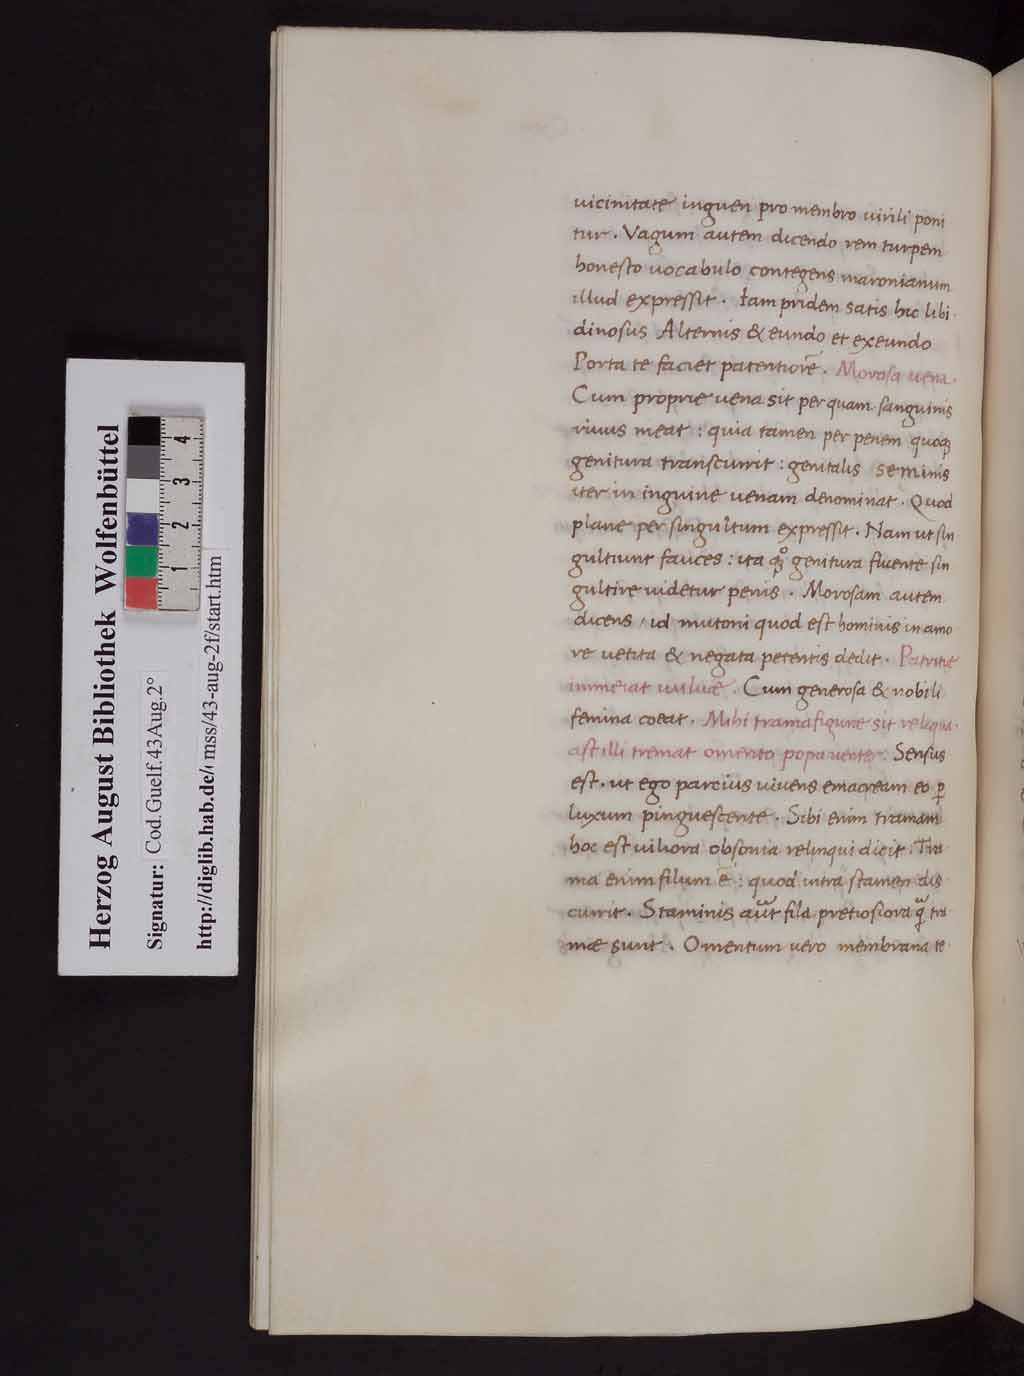 vicinitate inguen pro membro virili poni
tur. Vagum autem dicendo rem turpem
honesto uocabulo contegens maronianum
illud expressit. Iam pridem satis hic libi
dinosus Alternis & eundo et exeundo
Porta te faciet patentiorē. Morosa uena.
Cum proprie uena sit per quam sanguinis
riuus meat: quia tamen per penem quoqꝫ
genitura transcurrit: genitalis seminis
iter in inguine uenam denominat. Quod
plane per singultum expressit. Nam ut sin
gultiunt fauces: ita qͦꝫ genitura fluente sin
gultire uidetur penis. Morosam autem
dicens, id mutoni quod est hominis in amo
re uetita & negata petentis dedit. Patritię
immeiat uuluæ. Cum generosa & nobili
femina coeat. Mihi trama figuræ sit reliqua.
ast illi tremat omento popa uenter. Sensus
est. ut ego parcius uiuens emacream eo ꝑ
luxum pinguescente. Sibi enim tramam
hoc est uiliora obsonia relinqui dicit. Tra
ma enim filum ē: quod intra stamen dis
currit. Staminis aūt fila pretiosiora q̃ tra
mæ sunt. Omentum uero membrana te
Herzog August Bibliothek Wolfenbüttel
Signatur: Cod.Guelf.43Aug.2°
http://diglib.hab.de/ mss/43-aug-2f/start.htm
1 2 3 4